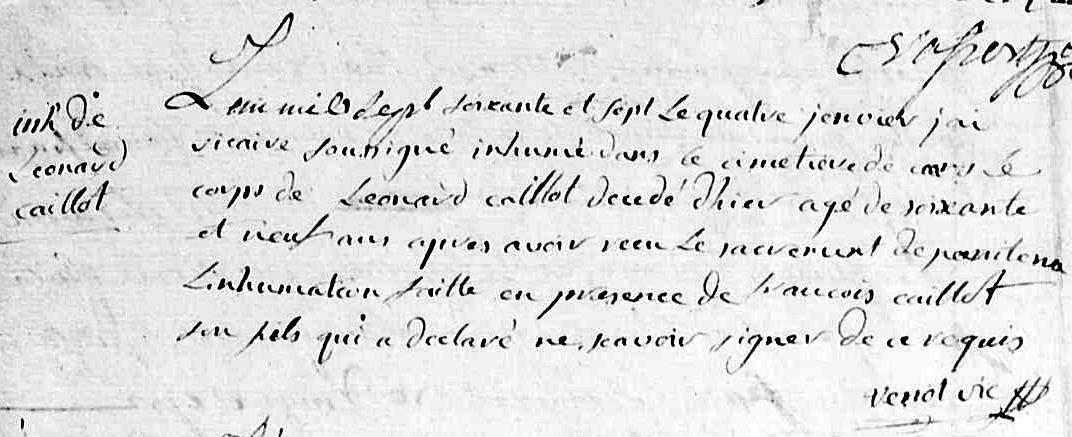 inh de
Leonard
caillot
L'an mil sept soixante et sept Le quatre janvier j'ai
vicaire soussigné inhumé dans le cimetiere de ce
corps de Leonard caillot decedé d'hier agé de soixante
et neuf ans apres avoir receu Le sacrement de penitence
L'inhumation faitte en presence de francois caillot
son fils qui a declaré ne scavoir signer de ce requis
venot vic